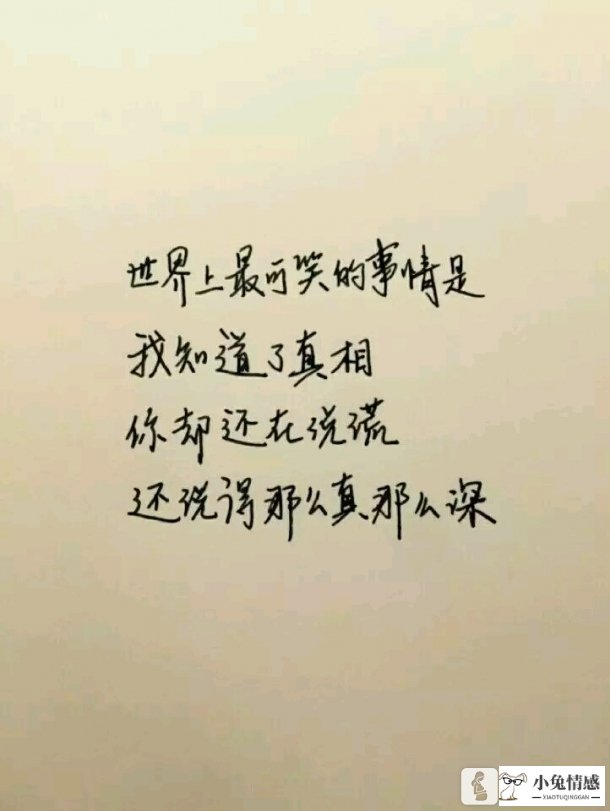 世界上最可笑的事情是
我知道了真相
你却还在说谎
还说得那么真那么深
小兔情感
XIAOTUQINGGAN